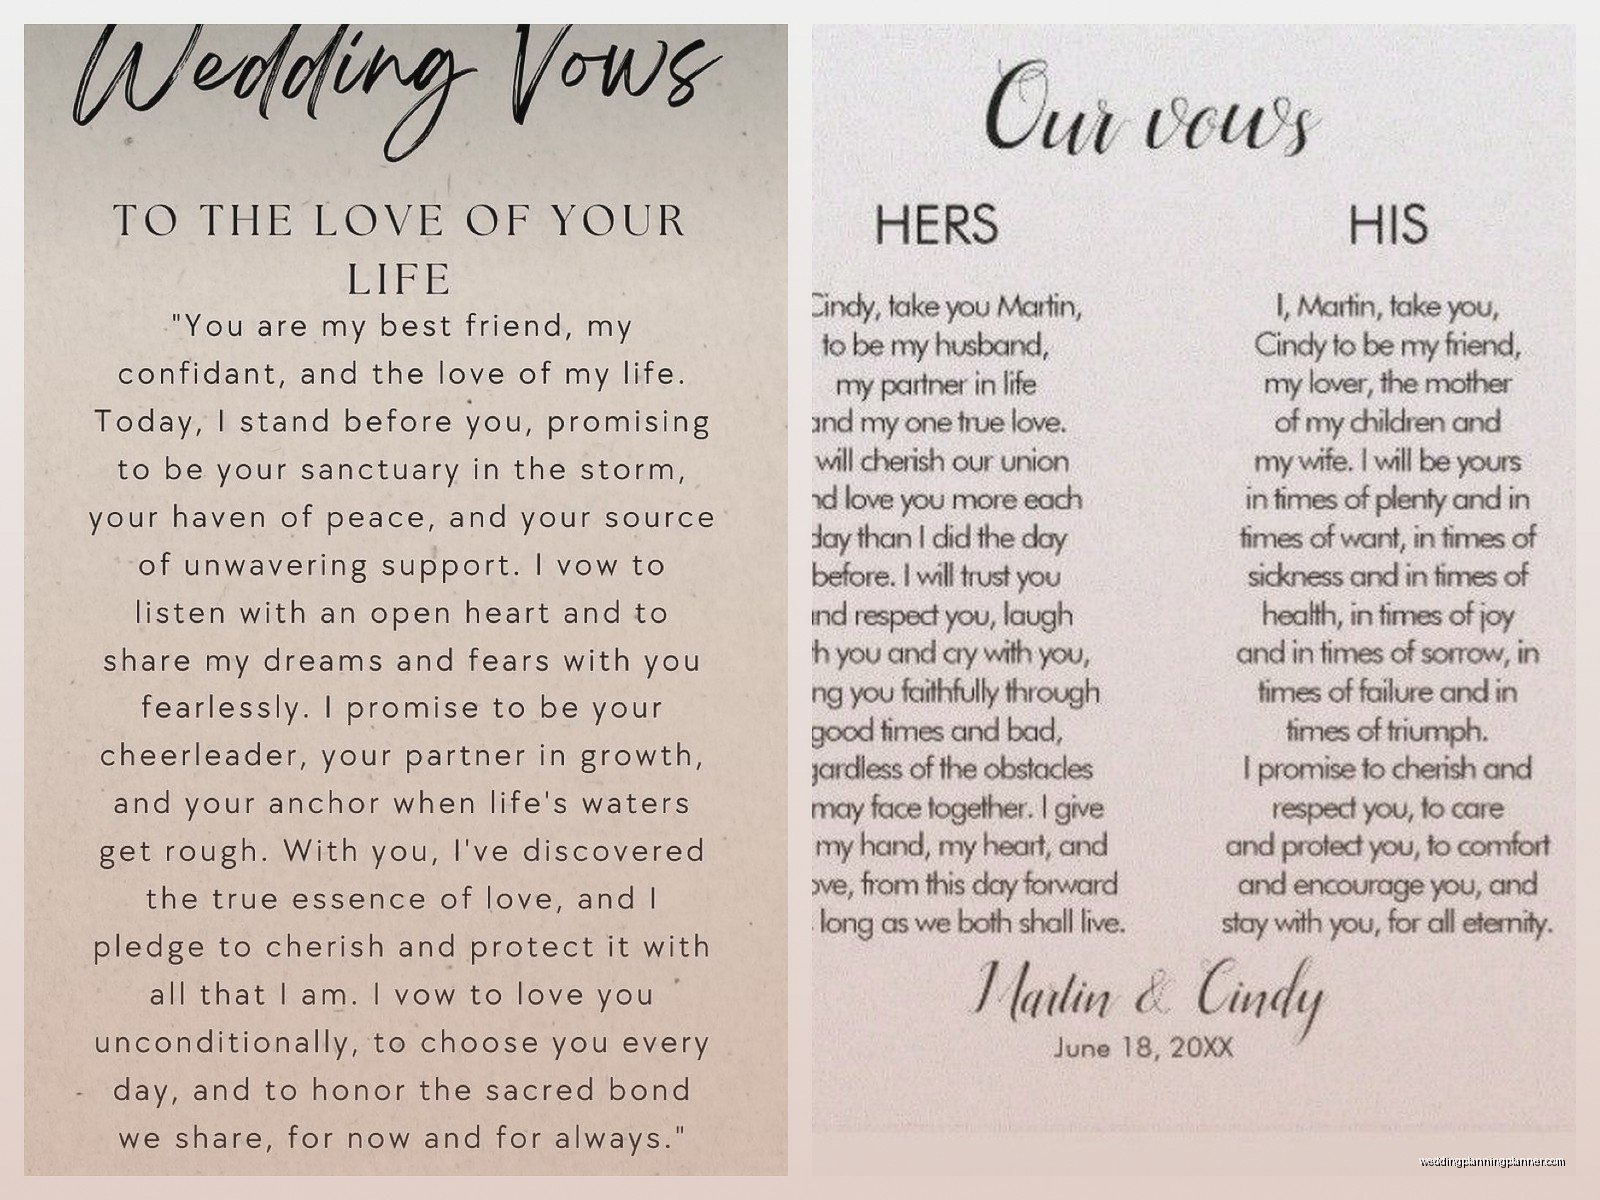 Wedding Vows
TO THE LOVE OF YOUR
LIFE
"You are my best friend, my
confidant, and the love of my life.
Today, I stand before you, promising
to be your sanctuary in the storm,
your haven of peace, and your source
of unwavering support. I vow to
listen with an open heart and to
share my dreams and fears with you
fearlessly. I promise to be your
cheerleader, your partner in growth,
and your anchor when life's waters
get rough. With you, I've discovered
the true essence of love, and I
pledge to cherish and protect it with
all that I am. I vow to love you
unconditionally, to choose you every
day, and to honor the sacred bond
we share, for now and for always."
Our vows
HERS
Cindy, take you Martin,
to be my husband,
my partner in life
and my one true love.
will cherish our union
love you more each
day than I did the day
before. I will trust you
and respect you, laugh
you and cry with you,
you faithfully through
good times and bad,
of the obstacles
may face together. I give
my hand, my heart, and
from this day forward
long as we both shall live.
HIS
I, Martin, take you,
Cindy to be my friend,
my lover, the mother
of my children and
my wife. I will be yours
in times of plenty and in
times of want, in times of
sickness and in times of
health, in times of joy
and in times of sorrow, in
times of failure and in
times of triumph.
I promise to cherish and
respect you, to care
and protect you, to comfort
and encourage you, and
stay with you, for all eternity.
Martin & Cindy
June 18, 20XX
weddingplanningplanner.com